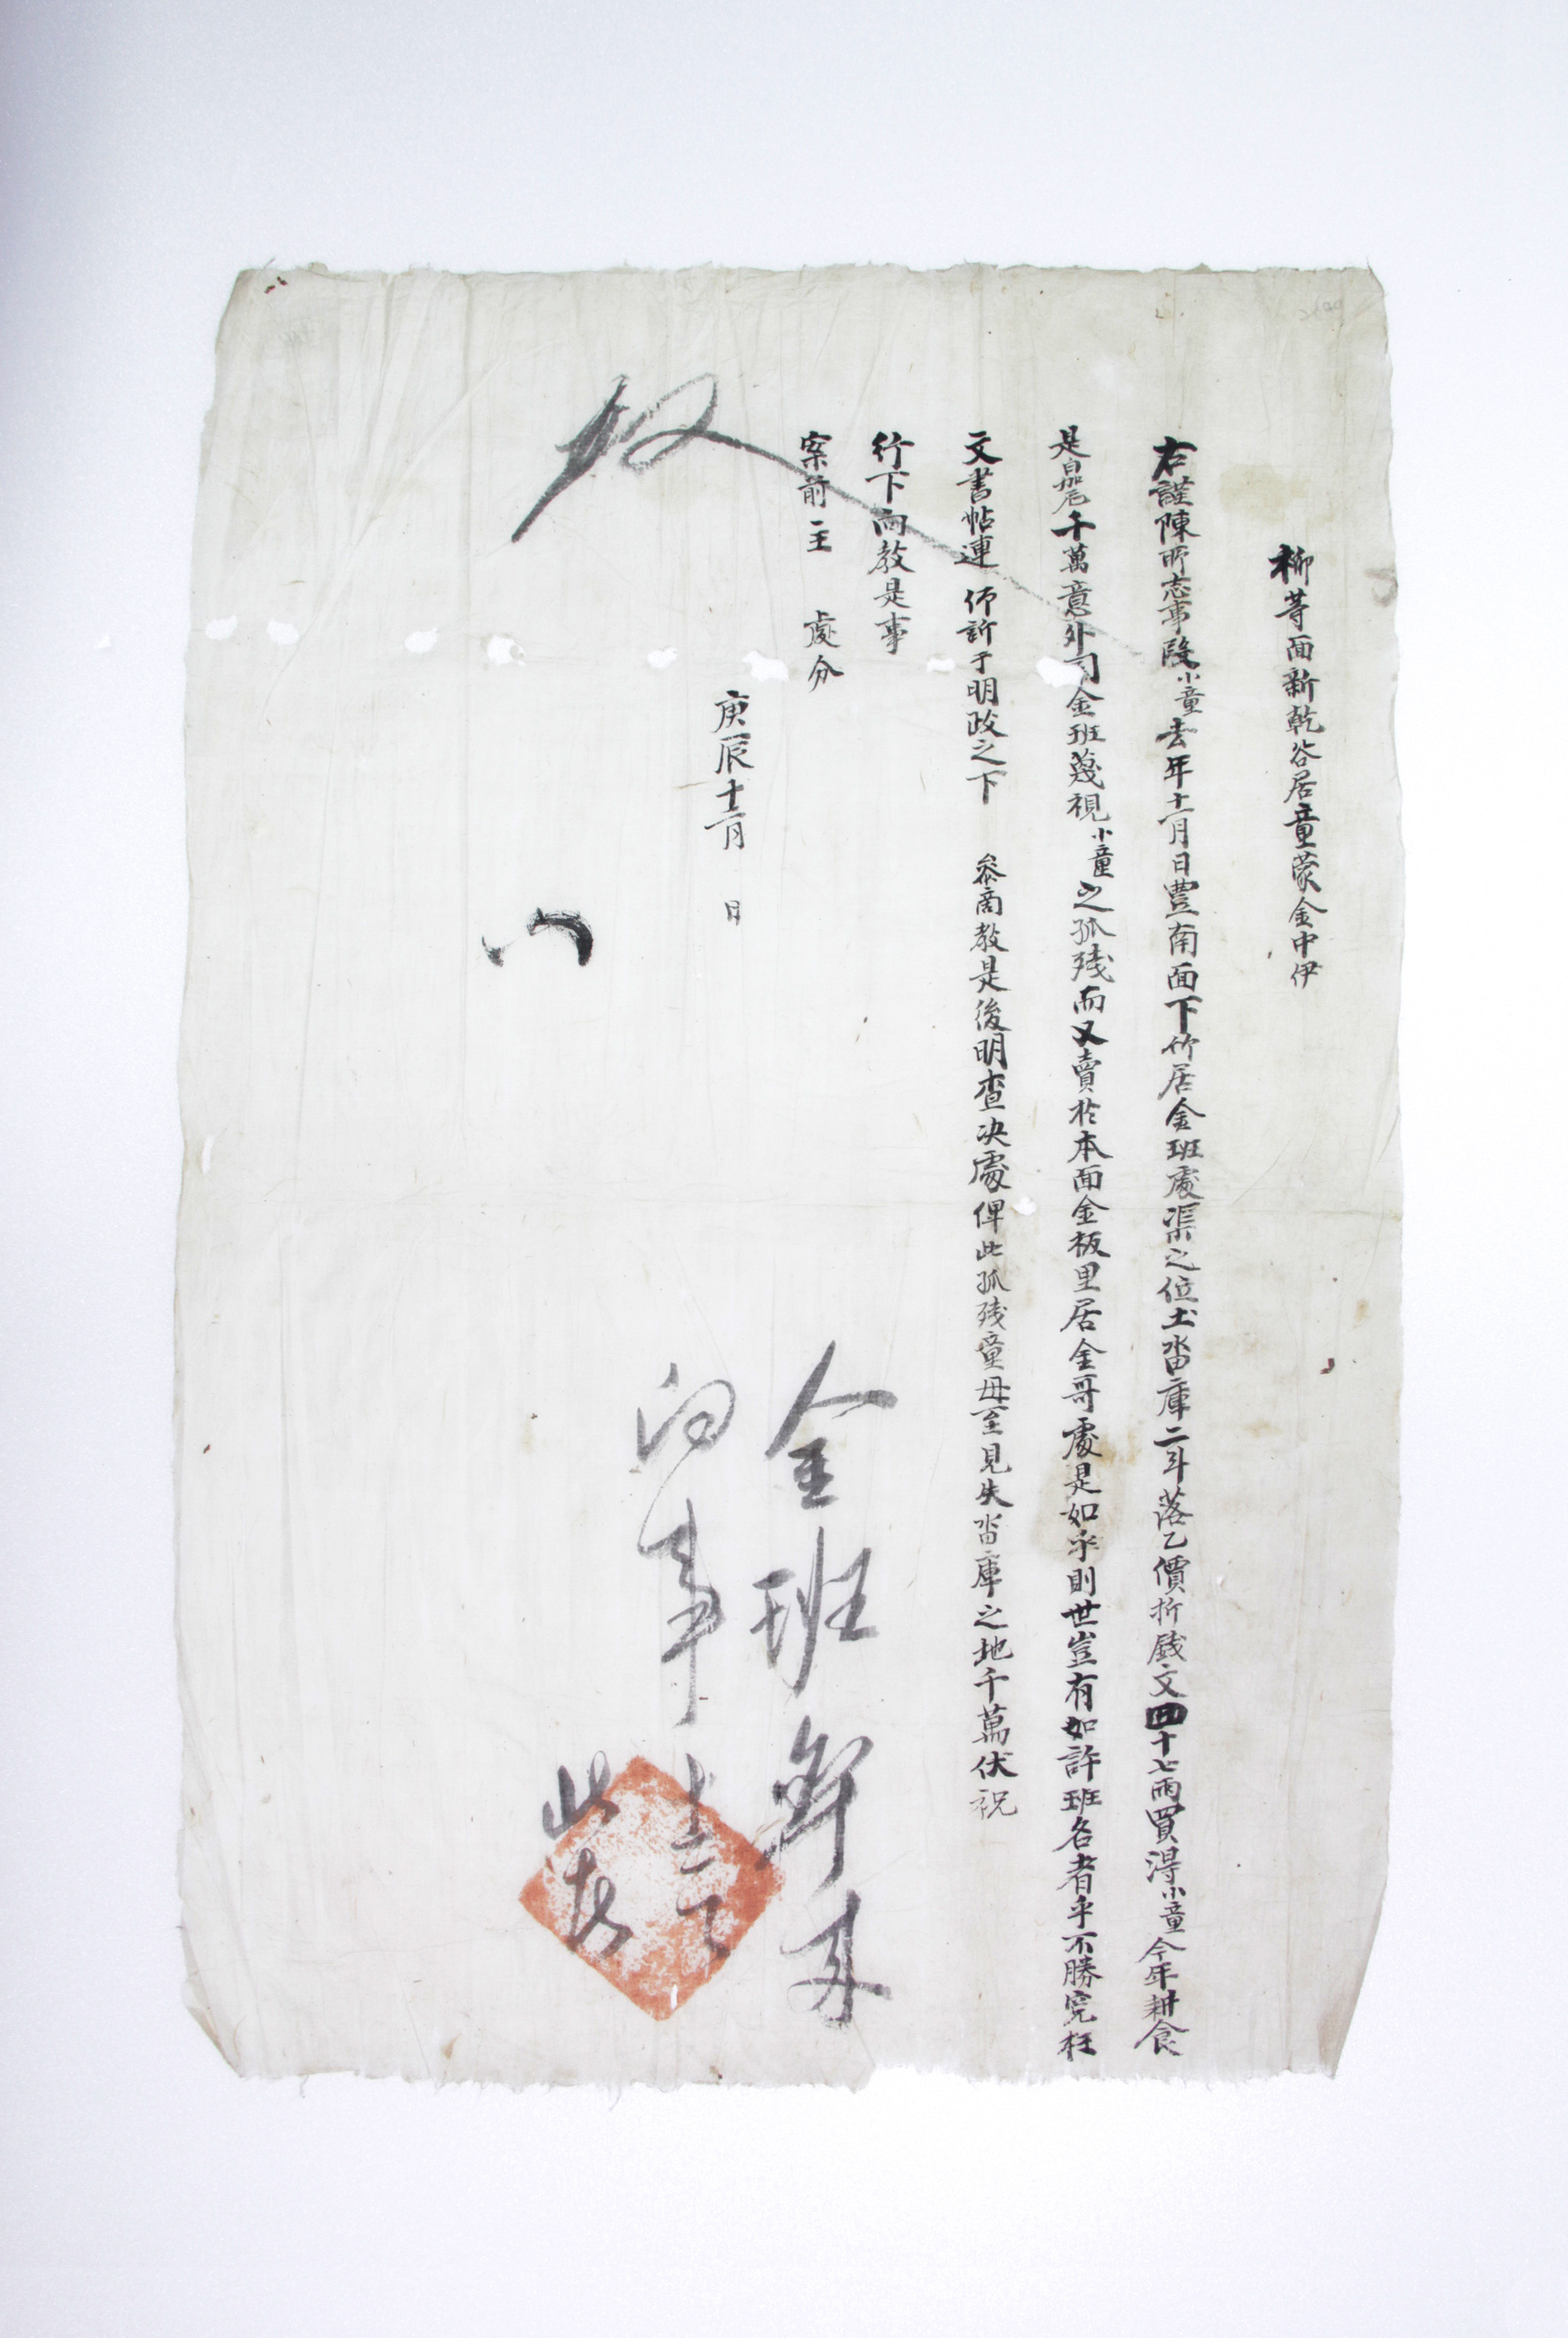 柳等面新乾谷居童蒙金中伊
右謹陳所志事段小童去年十二月日豊南面下竹居金班處渠之位土畓庫二斗落乙價折戔文四十七兩買得小童今年耕食
是如尼千萬意外同金班蔑視小童之孤殘而又賣於本面金板里居金哥處是如乎則世豈有如許班名者乎不勝寃枉
文書帖連仰訴于明政之下 參商教是後明查決處俾此孤殘童毋至見失畓庫之地千萬伏祝
行下向教是事
案前主 處分
庚辰十二月 日
金班率來
向事
十二
此漢